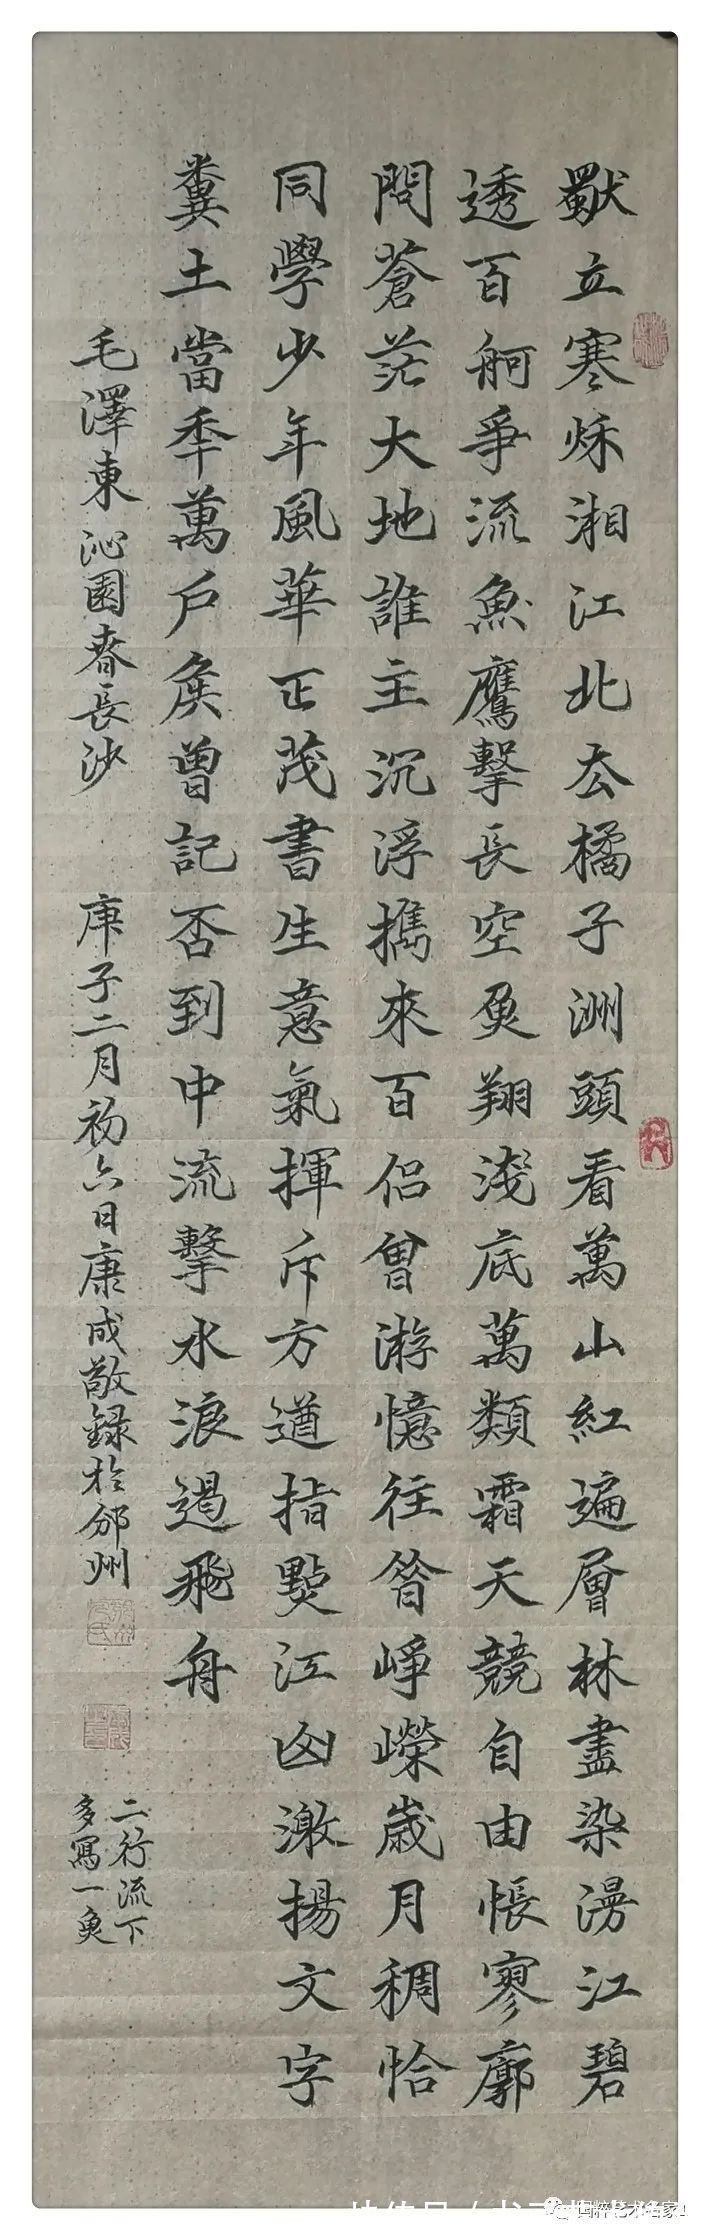 獨立寒秌湘江北去橘子洲頭看萬山紅遍層林盡染漫江碧
透百舸爭流魚鷹擊長空魚翔淺底萬類霜天競自由悵寥廓
問蒼茫大地誰主沉浮攜來百侶曾游憶往昔崢嶸歲月稠恰
同學少年風華正茂書生意氣揮斥方遒指點江山激揚文字
糞土當年萬戶矦曾記否到中流擊水浪遏飛舟
毛澤東沁園春長沙 庚子二月初六日康成敬錄於邠州
二行流下
多寫一魚
国粹艺术名家